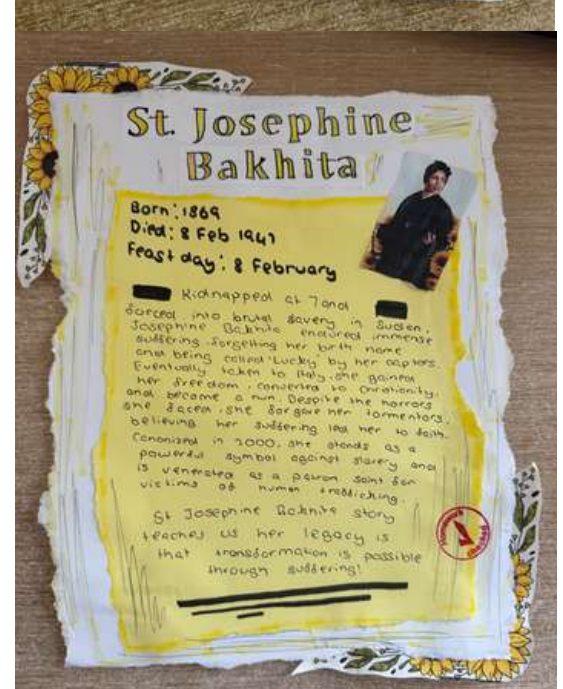 St. Josephine
Bakhita
Born: 1869
Died: 8 Feb 1947
Feast day: 8 February
Kidnapped at 7 and
forced into brutal slavery in Sudan,
Josephine Bakhita endured immense
suffering, forgetting her birth name
and being called 'Lucky' by her captors.
Eventually taken to Italy, she gained
her freedom, converted to Christianity,
and became a nun. Despite the horrors
she faced, she forgave her tormentors,
believing her suffering led her to faith.
Canonized in 2000, she stands as a
powerful symbol against slavery and
is venerated as a patron saint for
victims of human trafficking.
St Josephine Bakhita story
teaches us her legacy is
that transformation is possible
through suffering!